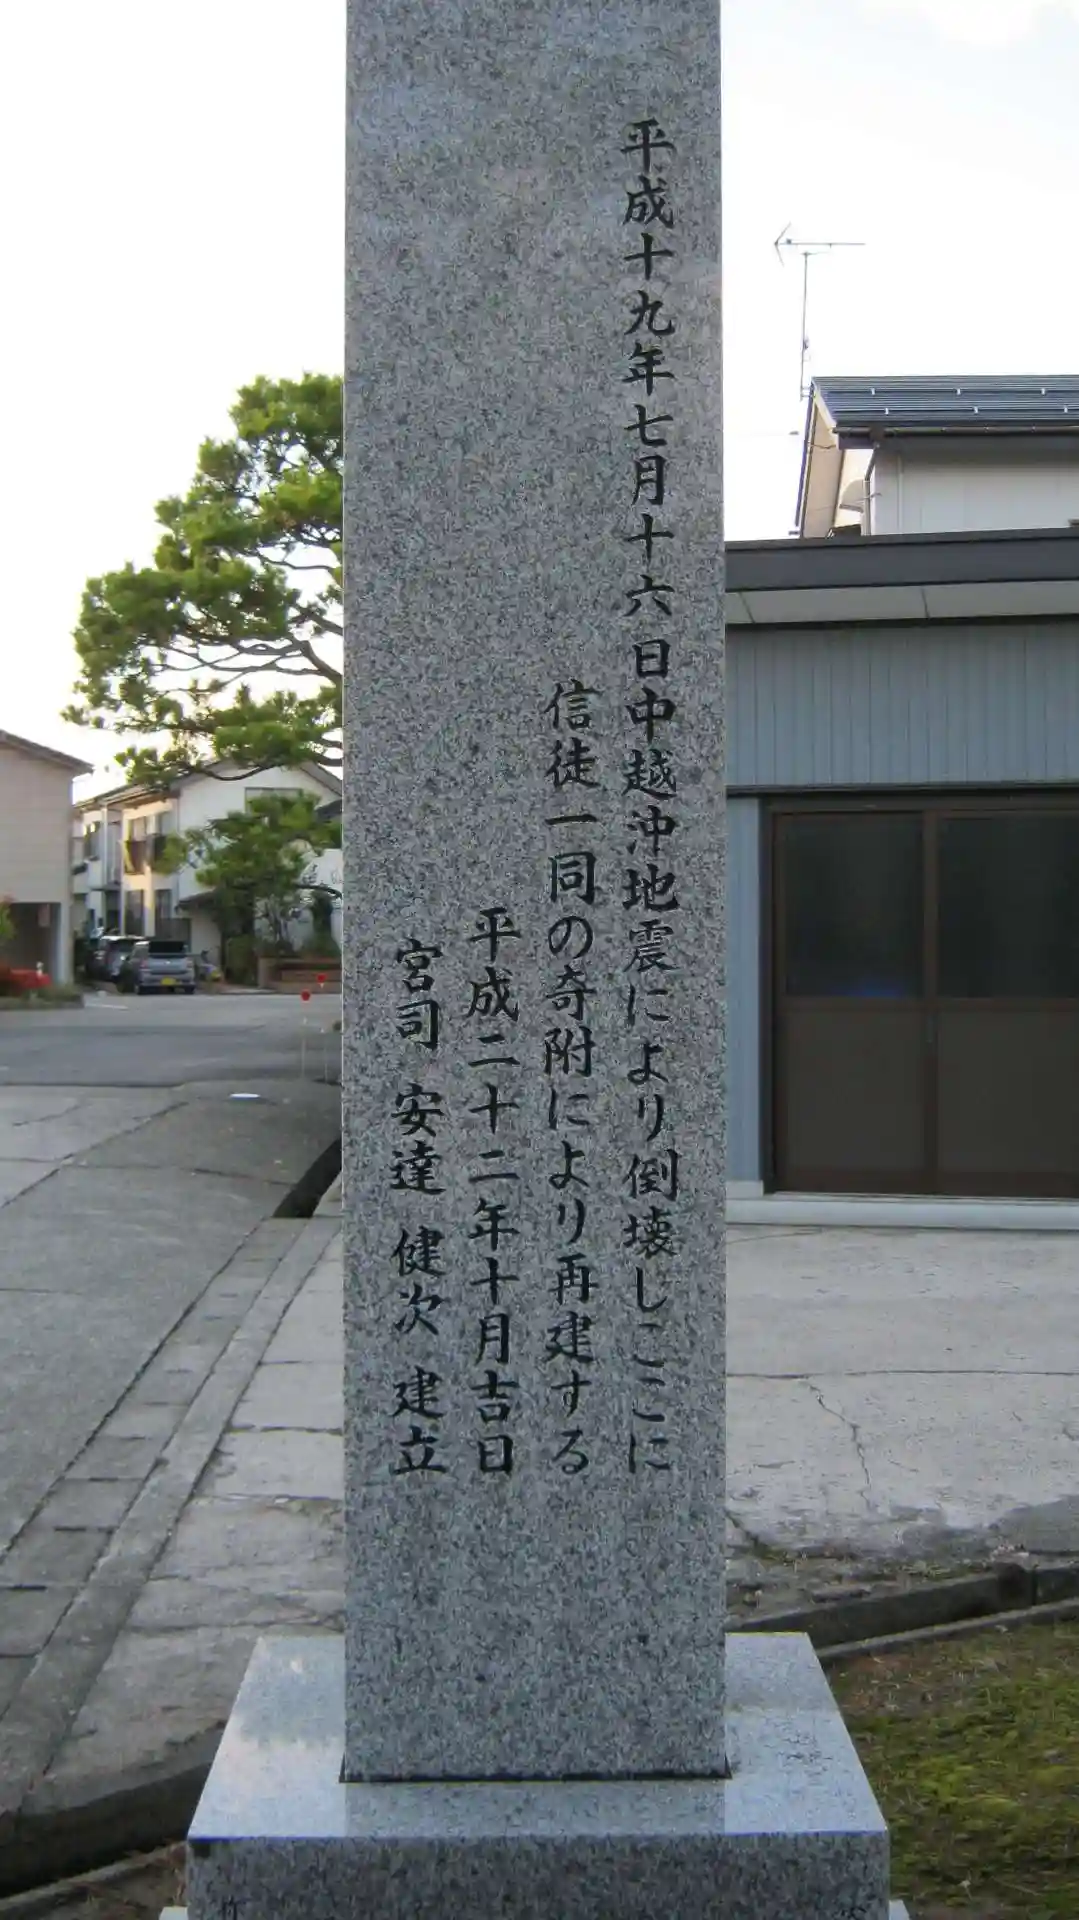 平成十九年七月十六日中越沖地震により倒壊しここに
信徒一同の奇附により再建する
平成二十二年十月吉日
宮司 安達 健次 建立